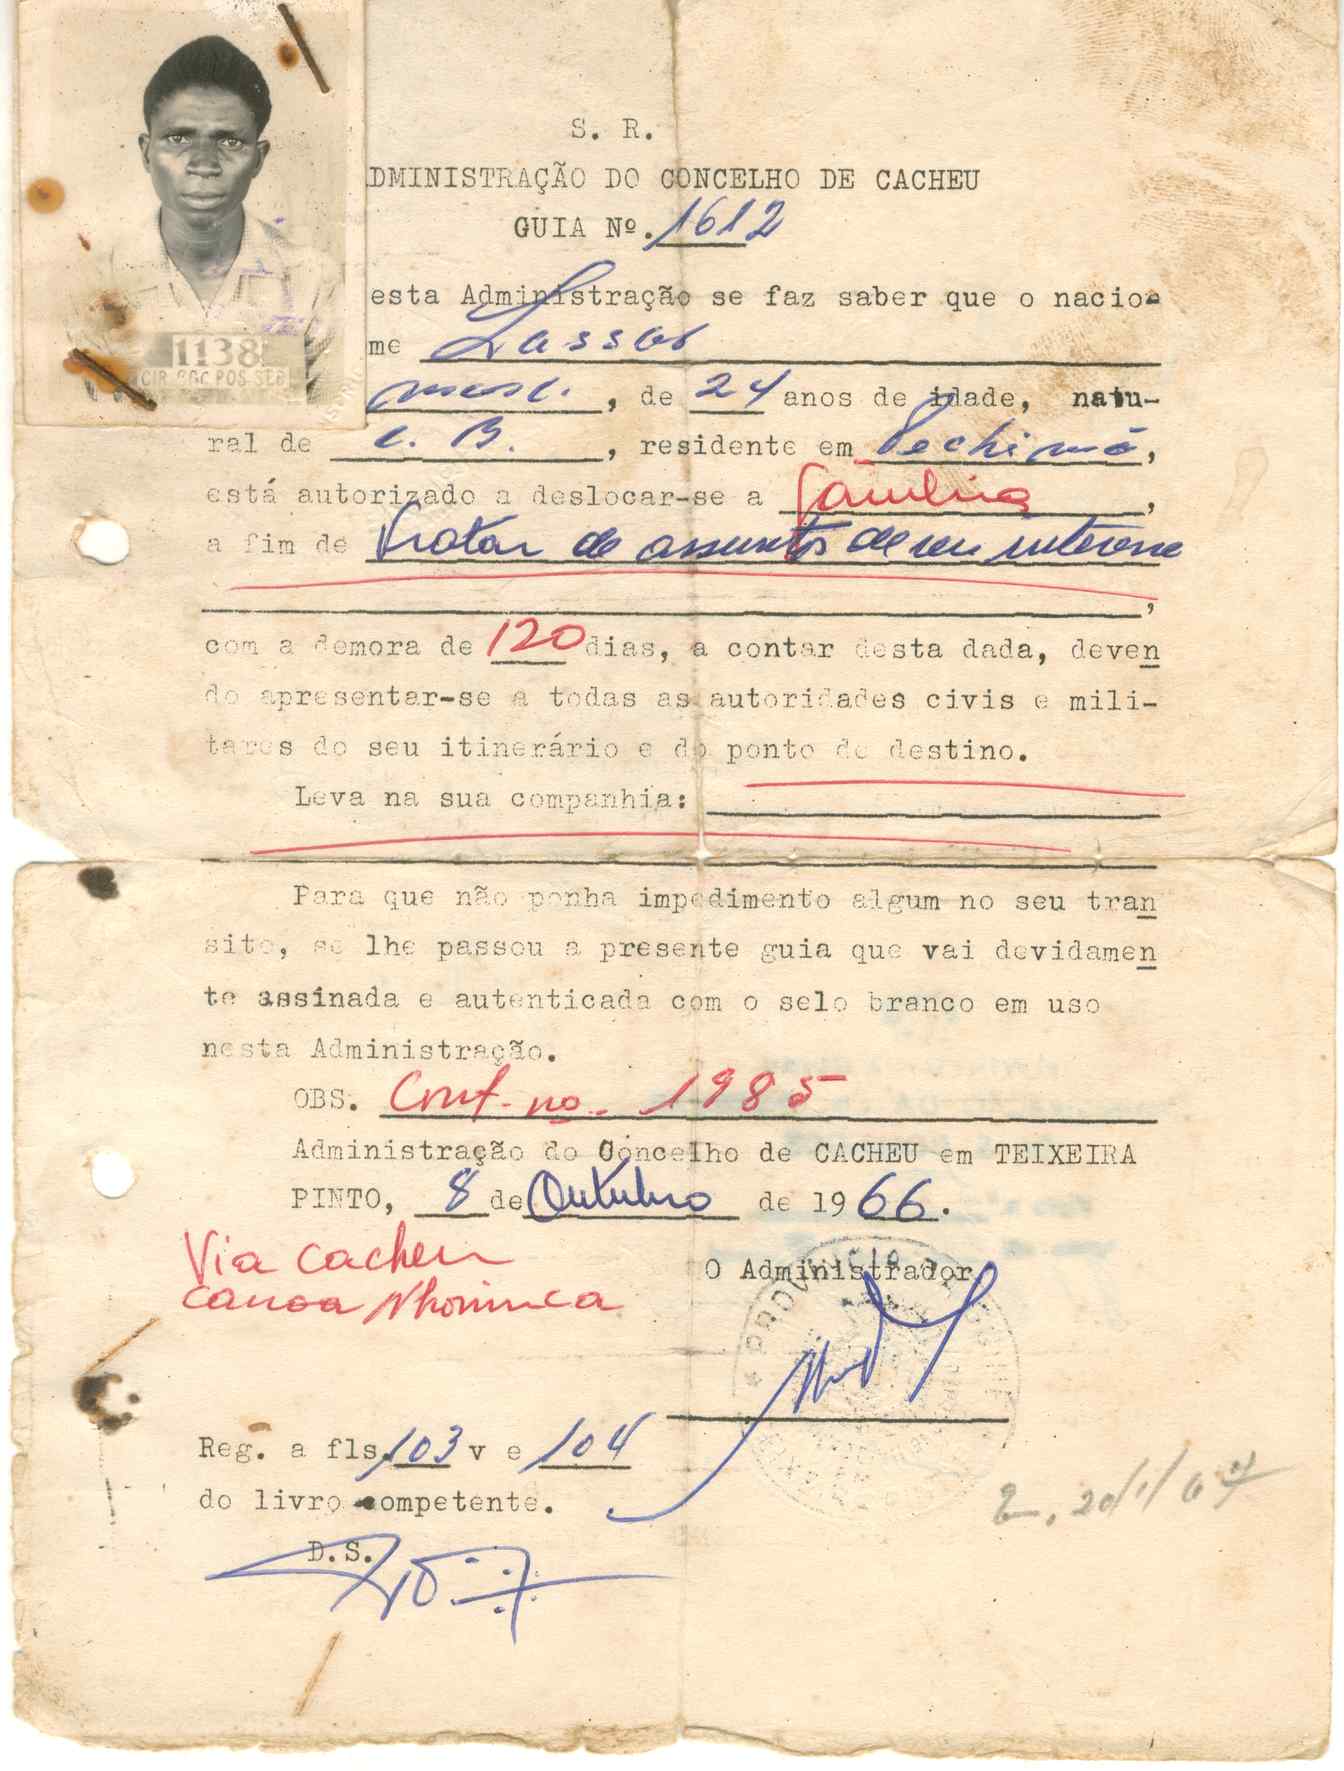 S. R.
DMINISTRAÇÃO DO CONCELHO DE CACHEU
GUIA Nº. 1612
esta Administração se faz saber que o nacio-
me Lassos
masc. , de 24 anos de idade, natu-
ral de C. B. , residente em Pechimó,
está autorizado a deslocar-se a Gambia ,
a fim de tratar de assuntos de seu interesse
,
com a demora de 120 dias, a contar desta dada, deven
do apresentar-se a todas as autoridades civis e mili-
tares do seu itinerário e do ponto de destino.
Leva na sua companhia:
Para que não ponha impedimento algum no seu tran
sito, se lhe passou a presente guia que vai devidamen
te assinada e autenticada com o selo branco em uso
nesta Administração.
OBS. Cont. no. 1985
Administração do Concelho de CACHEU em TEIXEIRA
PINTO, 8 de Outubro de 1966.
Via Cacheu
canoa Nhominca
O Administrador
Reg. a fls. 103 v e 104
do livro competente.
20/1/67
D.S.
1138
CIR CGC POS SEB